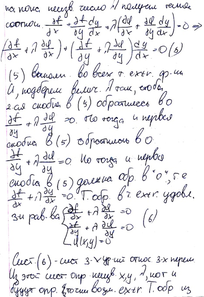 на пока неизв число λ получим такое
соотнош ∂f/∂x + ∂f/∂y dy/dx + λ(∂d/∂x + ∂d/∂y dy/dx) = 0 ⇒
(∂f/∂x + λ ∂d/∂x) + (∂f/∂y + λ ∂d/∂y) dy/dx = 0 (5)
(5) выполн. во всех т. экстр. ф-ии
И, подберем λ так, чтобы
2-ая скобка в (5) обратилась в 0
∂f/∂y + λ ∂d/∂y = 0. Но тогда и первая
скобка в (5) обратилась в 0
∂f/∂y + λ ∂d/∂y = 0 Но тогда и первая
скобка в (5) должна обр. в "0", т.е
∂f/∂x + λ ∂d/∂x = 0. Т.обр. в т экстр. удовл.
ур-ва
∂f/∂x + λ ∂d/∂x = 0
∂f/∂y + λ ∂d/∂y = 0 (6)
d(x,y) = 0
Сист. (6) - сист 3-х ур-ий относ 3-х неизв
Из этой сист опр неизв x, y, λ,
будут опр. точки возм. экстр. Т. обр из